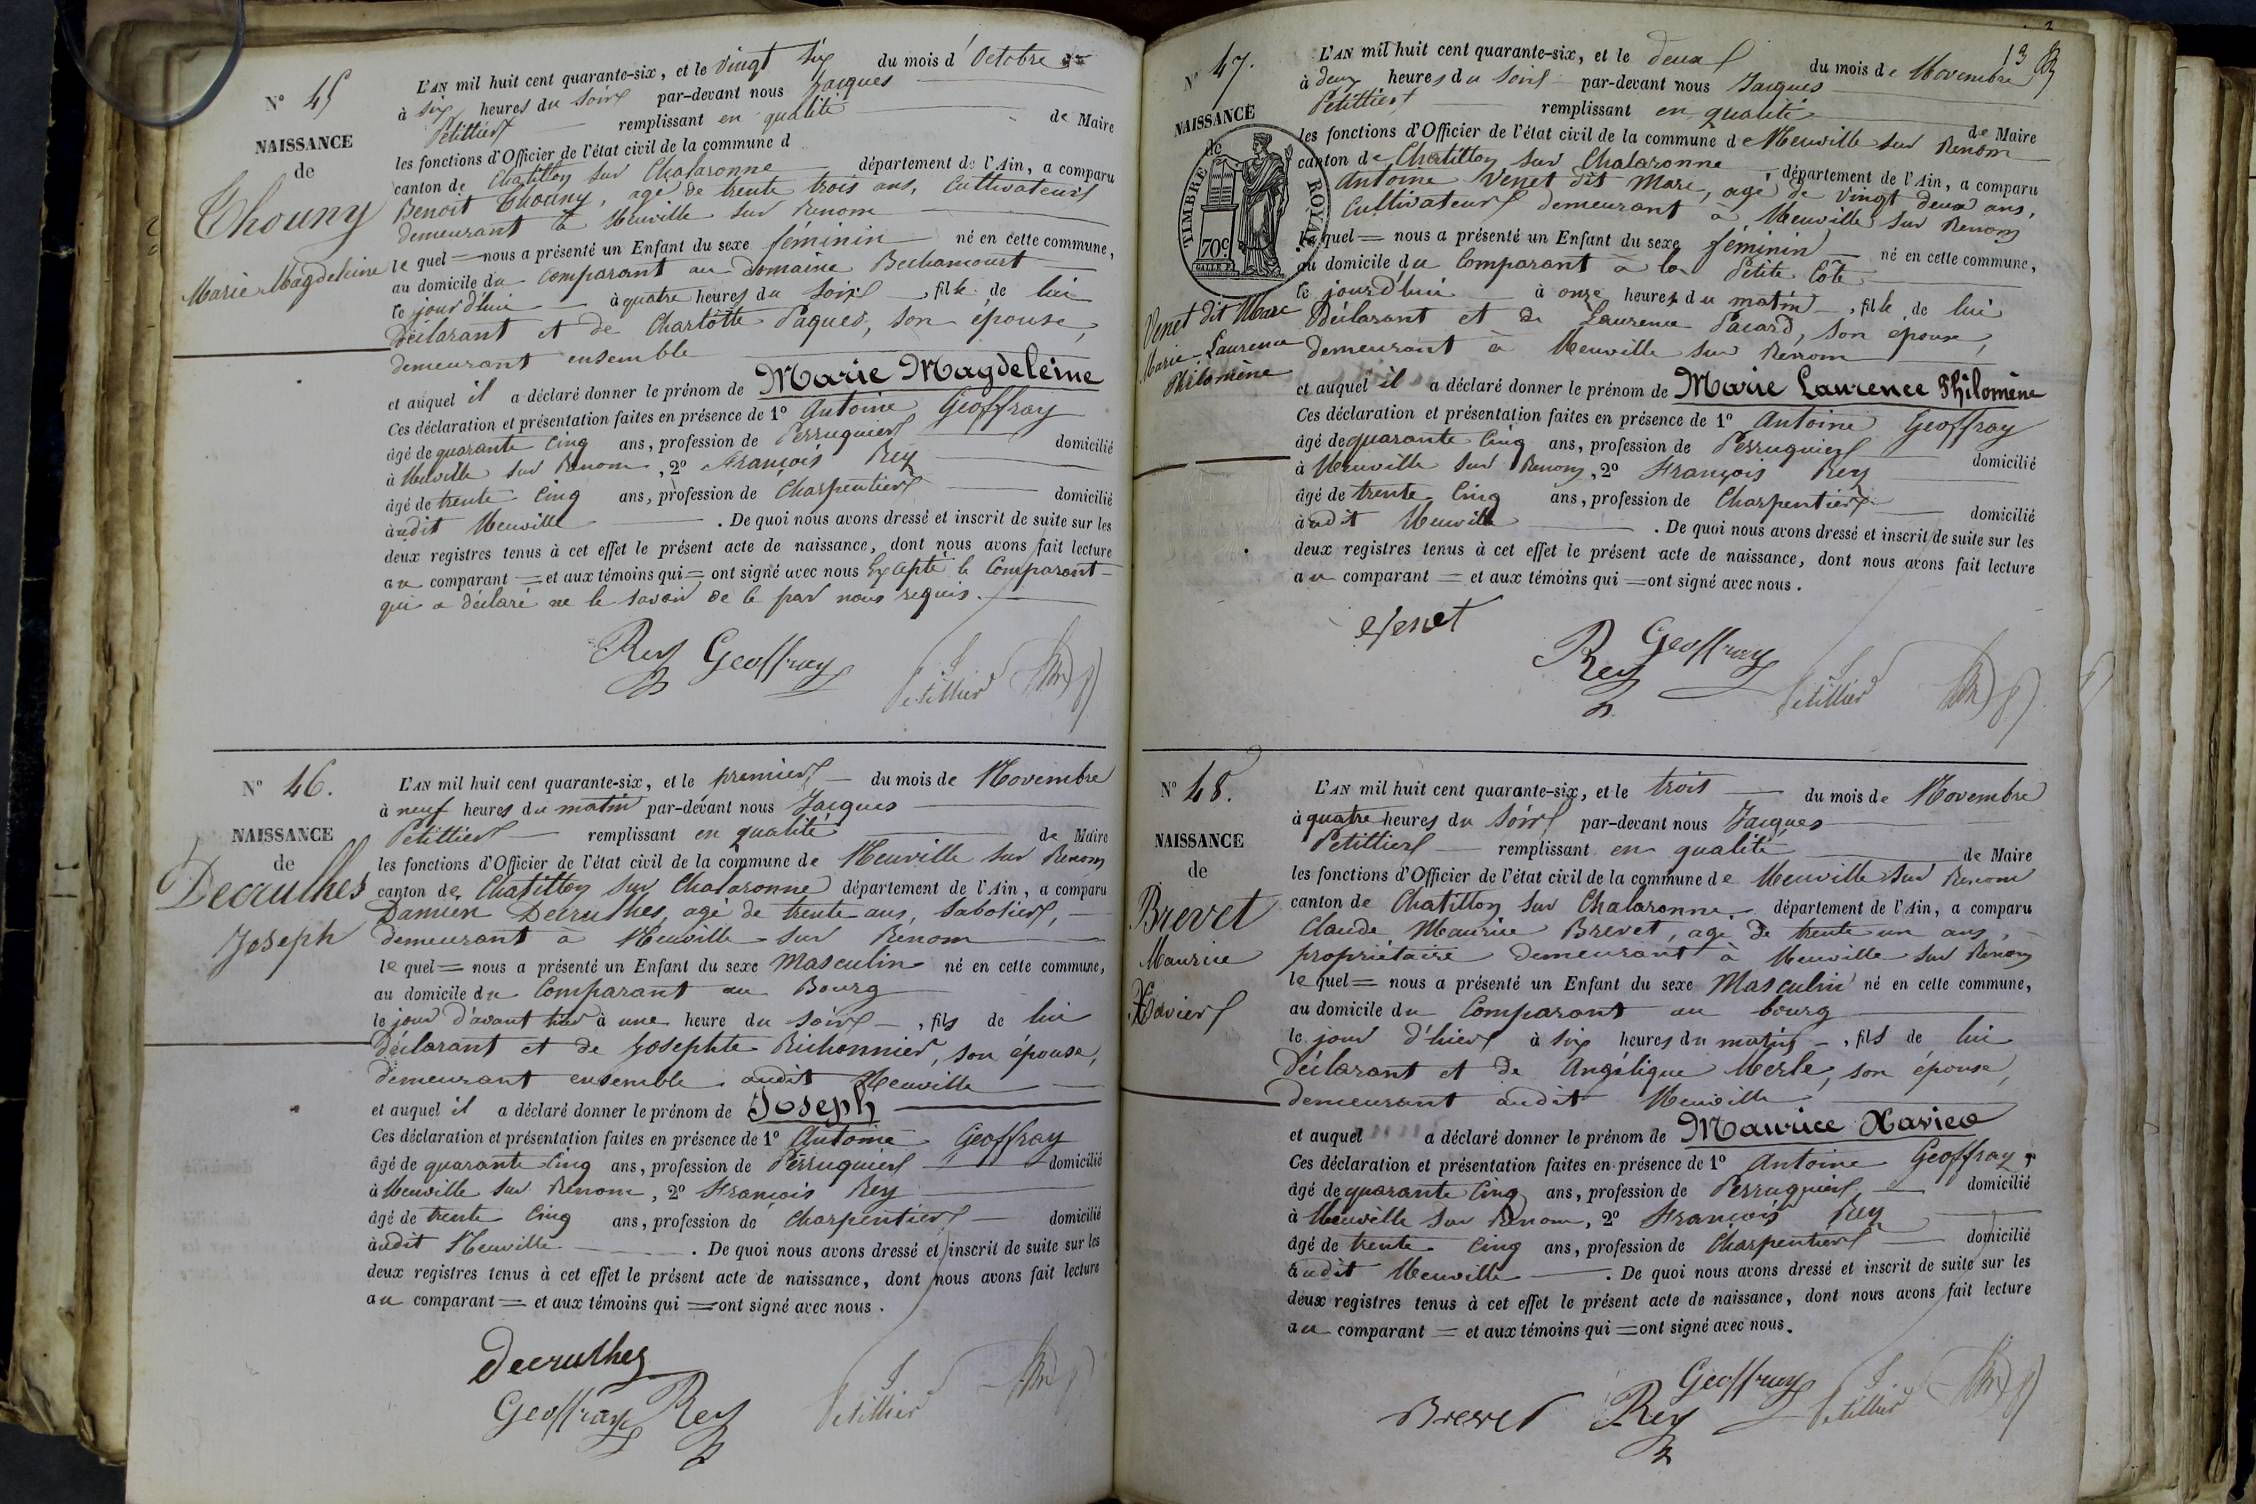 N° 45
NAISSANCE
de
Thouny
Marie Magdeleine
L'AN mil huit cent quarante-six, et le vingt six du mois d'Octobre
à six heures du soir par-devant nous Jacques
Petittier remplissant en qualité de Maire
les fonctions d'Officier de l'état civil de la commune d
canton de Chatillon sur Chalaronne département de l'Ain, a comparu
Benoit Thouny, agé de trente trois ans, cultivateur
demeurant à Neuville sur Renom
le quel = nous a présenté un Enfant du sexe féminin né en cette commune,
au domicile du comparant au domaine Bechamourt
le jourd'hui à quatre heures du soir, fille de lui
Déclarant et de Charlotte Paques, son épouse,
demeurant ensemble
et auquel il a déclaré donner le prénom de Marie Magdeleine
Ces déclaration et présentation faites en présence de 1° Antoine Geoffray
âgé de quarante cinq ans, profession de Perruquier domicilié
à Neuville sur Renom, 2° François Rey
âgé de trente cinq ans, profession de Charpentier domicilié
audit Neuville. De quoi nous avons dressé et inscrit de suite sur les
deux registres tenus à cet effet le présent acte de naissance, dont nous avons fait lecture
au comparant = et aux témoins qui = ont signé avec nous Excepté le Comparant
qui a déclaré ne le savoir de ce par nous requis.
Rey Geoffray
J Petillier
N° 46.
NAISSANCE
de
Decrulhes
Joseph
L'AN mil huit cent quarante-six, et le premier du mois de Novembre
à neuf heures du matin par-devant nous Jacques
Petittier remplissant en qualité de Maire
les fonctions d'Officier de l'état civil de la commune de Neuville sur Renom
canton de Chatillon sur Chalaronne département de l'Ain, a comparu
Damien Decrulhes, agé de trente ans, sabotier,
demeurant à Neuville sur Renom
le quel = nous a présenté un Enfant du sexe Masculin né en cette commune,
au domicile du Comparant au Bourg
le jour d'avant hier à une heure du soir, fils de lui
Déclarant et de Josephte Bichonnier, son épouse,
demeurant ensemble audit Neuville
et auquel il a déclaré donner le prénom de Joseph
Ces déclaration et présentation faites en présence de 1° Antoine Geoffray
âgé de quarante cinq ans, profession de Perruquier domicilié
à Neuville sur Renom, 2° François Rey
âgé de trente cinq ans, profession de charpentier domicilié
audit Neuville. De quoi nous avons dressé et inscrit de suite sur les
deux registres tenus à cet effet le présent acte de naissance, dont nous avons fait lecture
au comparant = et aux témoins qui = ont signé avec nous.
Decrulhes
Geoffray Rey
J Petillier
13
N° 47.
NAISSANCE
de
TIMBRE ROYAL
70c
Venet dit Mare
Marie Laurence
Philomène
L'AN mil huit cent quarante-six, et le deux du mois de Novembre
à deux heures du soir par-devant nous Jacques
Petittier remplissant en qualité de Maire
les fonctions d'Officier de l'état civil de la commune de Neuville sur Renom
canton de Chatillon sur Chalaronne département de l'Ain, a comparu
Antoine Venet dit Mare, agé de vingt deux ans,
cultivateur demeurant à Neuville sur Renom
le quel = nous a présenté un Enfant du sexe féminin né en cette commune,
au domicile du Comparant à la Petite Côte
le jourd'hui à onze heures du matin, fille de lui
Déclarant et de Laurence Pacard, son épouse,
demeurant à Neuville sur Renom
et auquel il a déclaré donner le prénom de Marie Laurence Philomène
Ces déclaration et présentation faites en présence de 1° Antoine Geoffray
âgé de quarante cinq ans, profession de Perruquier domicilié
à Neuville sur Renom, 2° François Rey
âgé de trente cinq ans, profession de Charpentier domicilié
audit Neuville. De quoi nous avons dressé et inscrit de suite sur les
deux registres tenus à cet effet le présent acte de naissance, dont nous avons fait lecture
au comparant = et aux témoins qui = ont signé avec nous.
Venet
Rey Geoffray
J Petillier
N° 48.
NAISSANCE
de
Brevet
Maurice
Xavier
L'AN mil huit cent quarante-six, et le trois du mois de Novembre
à quatre heures du soir par-devant nous Jacques
Petittier remplissant en qualité de Maire
les fonctions d'Officier de l'état civil de la commune de Neuville sur Renom
canton de Chatillon sur Chalaronne département de l'Ain, a comparu
Claude Maurice Brevet, agé de trente un ans,
propriétaire demeurant à Neuville sur Renom
le quel = nous a présenté un Enfant du sexe Masculin né en cette commune,
au domicile du Comparant au bourg
le jour d'hier à six heures du matin, fils de lui
Déclarant et de Angélique Merle, son épouse,
demeurant audit Neuville
et auquel a déclaré donner le prénom de Maurice Xavier
Ces déclaration et présentation faites en présence de 1° Antoine Geoffray
âgé de quarante cinq ans, profession de Perruquier domicilié
à Neuville sur Renom, 2° François Rey
âgé de trente cinq ans, profession de Charpentier domicilié
audit Neuville. De quoi nous avons dressé et inscrit de suite sur les
deux registres tenus à cet effet le présent acte de naissance, dont nous avons fait lecture
au comparant = et aux témoins qui = ont signé avec nous.
Brevet Rey Geoffray
J Petillier